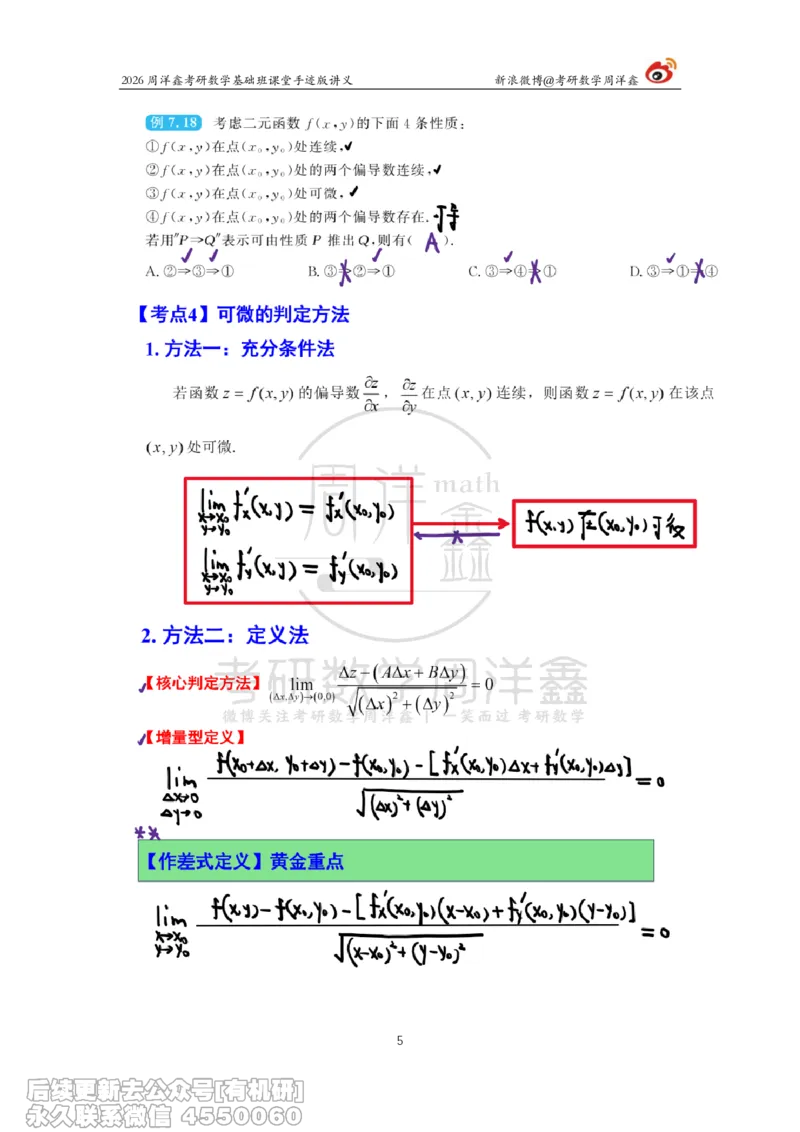 2026 周洋鑫考研数学基础班课堂手迹版讲义 新浪微博@考研数学周洋鑫
例 7.18 考虑二元函数 f(x,y)的下面 4 条性质:
①f(x,y)在点(x₀,y₀)处连续,✓
②f(x,y)在点(x₀,y₀)处的两个偏导数连续,✓
③f(x,y)在点(x₀,y₀)处可微,✓
④f(x,y)在点(x₀,y₀)处的两个偏导数存在. 可导
若用"P⇒Q"表示可由性质 P 推出 Q,则有( A ).
A. ②⇒③⇒① B. ③⇒②⇒① C. ③⇒④⇒① D. ③⇒①⇒④
【考点4】可微的判定方法
1. 方法一：充分条件法
若函数 z = f(x, y) 的偏导数 ∂z/∂x , ∂z/∂y 在点 (x, y) 连续，则函数 z = f(x, y) 在该点
(x, y) 处可微.
周洋鑫 math
lim x→x₀ y→y₀ fx′(x,y) = fx′(x₀,y₀)
f(x,y) 在(x₀,y₀) 可微
lim x→x₀ y→y₀ fy′(x,y) = fy′(x₀,y₀)
2. 方法二：定义法
考研数学周洋鑫
【核心判定方法】 lim (Δx,Δy)→(0,0) Δz−(AΔx+BΔy) / √((Δx)²+(Δy)²) = 0
微博关注考研数学周洋鑫 | 一笑而过 考研数学
【增量型定义】
lim Δx→0 Δy→0 f(x₀+Δx, y₀+Δy)−f(x₀,y₀)−[fx′(x₀,y₀)Δx+fy′(x₀,y₀)Δy] / √((Δx)²+(Δy)²) = 0
**
【作差式定义】黄金重点
lim x→x₀ y→y₀ f(x,y)−f(x₀,y₀)−[fx′(x₀,y₀)(x−x₀)+fy′(x₀,y₀)(y−y₀)] / √((x−x₀)²+(y−y₀)²) = 0
5
后续更新去公众号[有机研]
永久联系微信 4550060